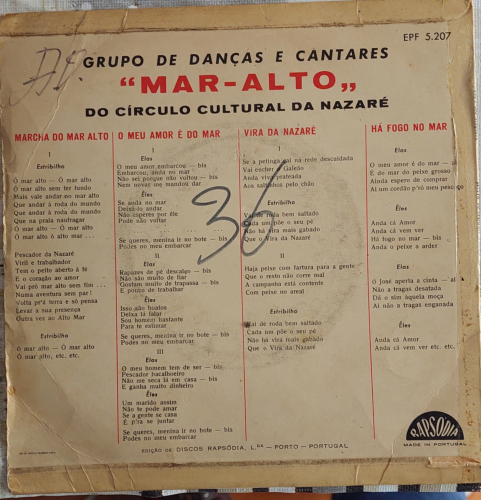 EPF 5.207
GRUPO DE DANÇAS E CANTARES
"MAR-ALTO"
DO CÍRCULO CULTURAL DA NAZARÉ
MARCHA DO MAR ALTO
I
Estribilho
Ó mar alto — Ó mar alto
Ó mar alto sem ter fundo
Mais vale andar no mar alto
Que andar à roda do mundo
Que andar à roda do mundo
Que na praia naufragar
Ó mar alto — Ó mar alto
Ó mar alto ó alto mar . . .
Pescador da Nazaré
Viril e trabalhador
Tem o peito aberto à fé
E o coração ao amor
Vai pró mar alto sem fim . . .
Numa aventura sem par!
Volta p'rá terra e só pensa
Levar a sua presença
Outra vez ao Alto Mar
Estribilho
Ó mar alto — Ó mar alto
Ó mar alto, etc. etc.
O MEU AMOR É DO MAR
I
Elas
O meu amor embarcou — bis
Embarcou, anda no mar
Não sei porque não voltou — bis
Nem novas me mandou dar
Êles
Se anda no mar
Deixá-lo andar
Não esperes por êle
Pode não voltar
Se queres, menina ir no bote — bis
Podes no meu embarcar
II
Elas
Rapazes de pé descalço — bis
Não são muito de fiar
Gostam muito de trapassa — bis
E pouco de trabalhar
Êles
Isso são boatos
Deixa lá falar
Sou homem bastante
Para te estimar
Se queres, menina ir no bote — bis
Podes no meu embarcar
III
Elas
O meu homem tem de ser — bis
Pescador bacalhoeiro
Não me seca lá em casa — bis
E ganha muito dinheiro
Êles
Um marido assim
Não te pode amar
Se a gente se casa
É p'ra se juntar
Se queres, menina ir no bote — bis
Podes no meu embarcar
VIRA DA NAZARÉ
I
Se a petinga cai na rede descuidada
Vai escher o Galeão
Anda viva prateada
Aos saltinhos pelo chão
Estribilho
Vai de roda bem saltado
Cada um põe o seu pé
Não há vira mais gabado
Que o Vira da Nazaré
II
Haja peixe com fartura para a gente
Que o resto não corre mal
A campanha está contente
Com peixe no areal
Estribilho
Vai de roda bem saltado
Cada um põe o seu pé
Não há vira mais gabado
Que o Vira da Nazaré
HÁ FOGO NO MAR
Elas
O meu amor é do mar
É de mar do peixe grosso
Ainda espero de comprar
Aí um cordão p'ró meu
Êles
Anda cá Amor
Anda cá vem ver
Há fogo no mar — bis
Anda o peixe a arder
Elas
O José aperta a cinta
Não a tragas desatada
Dá o sim àquela moça
Aí não a tragas enganada
Êles
Anda cá Amor
Anda cá vem ver etc.
36
RAPSÓDIA
MADE IN PORTUGAL
EDIÇÃO DE DISCOS RAPSÓDIA, L.DA — PORTO - PORTUGAL